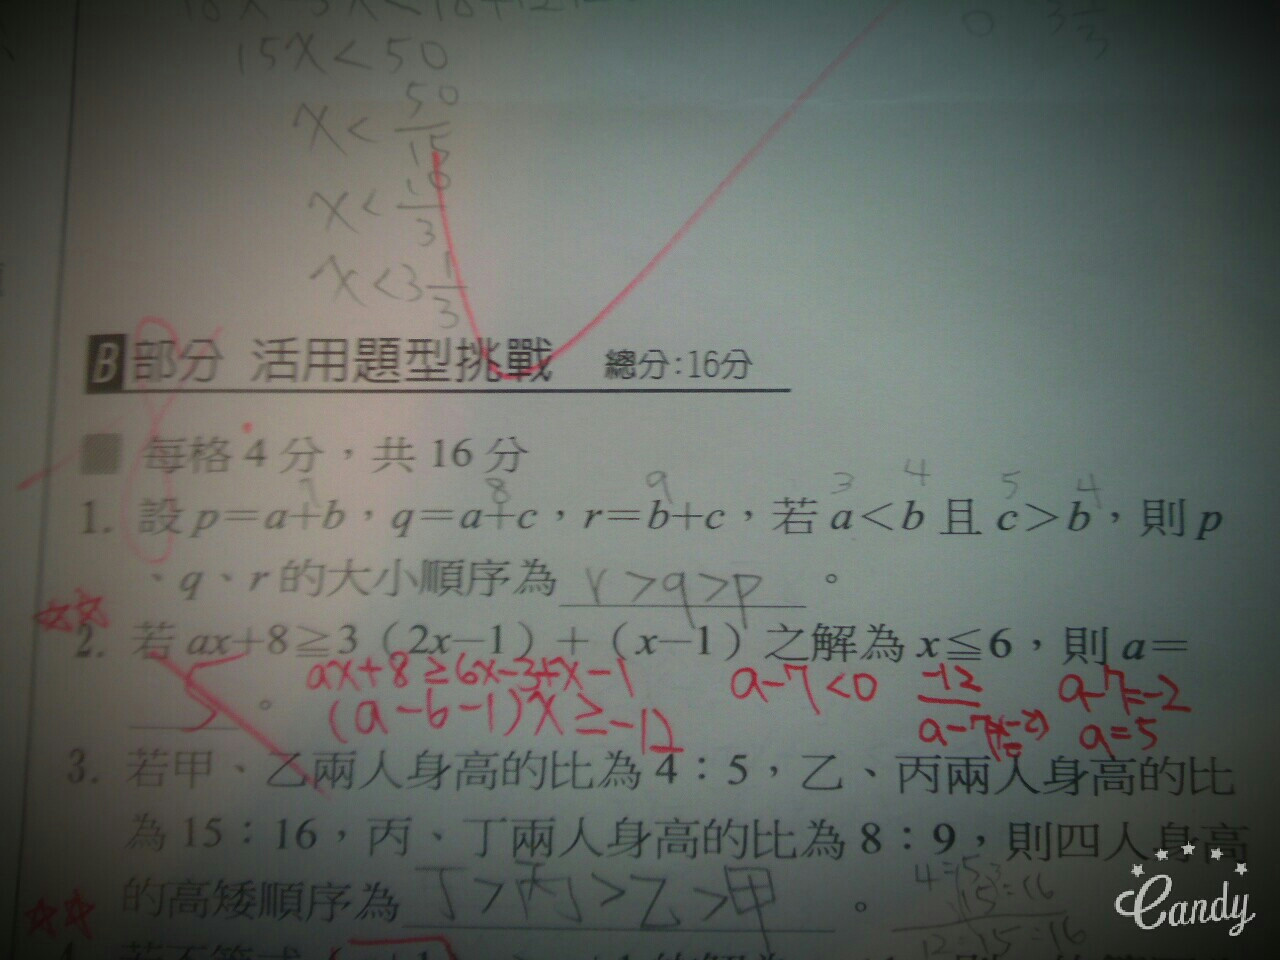 15x<50
x<50/15
x<10/3
x<3 1/3
B 部分 活用題型挑戰 總分:16分
每格 4 分，共 16 分
7 8 9 3 4 5 4
1. 設 p=a+b，q=a+c，r=b+c，若 a<b 且 c>b，則 p
、q、r 的大小順序為 r>q>p 。
2. 若 ax+8≧3（2x−1）+（x−1）之解為 x≦6，則 a=
5 。
ax+8≥6x-3+x-1 a-7<0 a-7=-2
(a-6-1)x≥-12 -12 a-7 (-2) a=5
3. 若甲、乙兩人身高的比為 4：5，乙、丙兩人身高的比
為 15：16，丙、丁兩人身高的比為 8：9，則四人身高
的高矮順序為 丁>丙>乙>甲 。
4:5
15:16
12:15:16
Candy